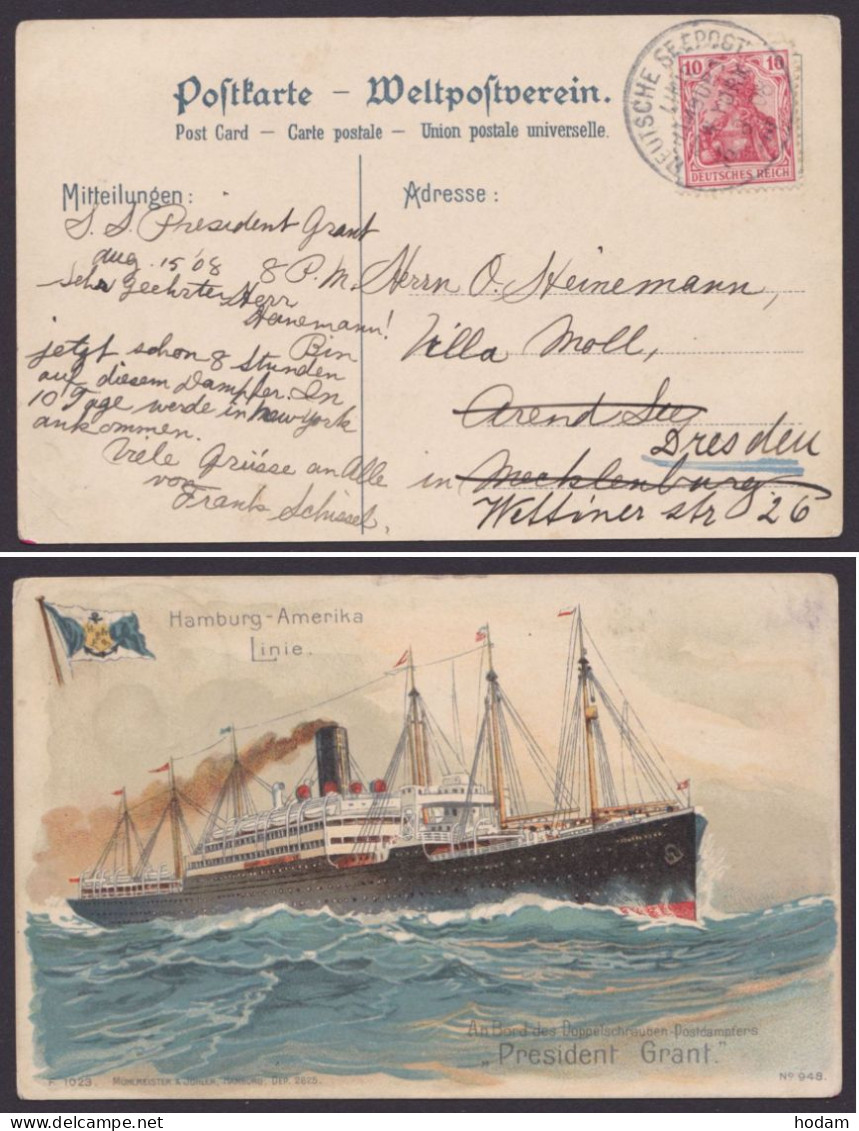 Postkarte – Weltpostverein.
Post Card – Carte postale – Union postale universelle.
DEUTSCHE SEEPOST
10 10
DEUTSCHES REICH
Mitteilungen:
Adresse:
S. S. President Grant
Aug. 15 '08 8 P. M.
Sehr Geehrter Herr
Heinemann!
Bin
jetzt schon 8 Stunden
auf diesem Dampfer. In
10 Tage werde in New York
ankommen.
Viele Grüsse an Alle
von
Frank Schissel.
Herrn O. Heinemann,
Villa Moll,
Arend See
Dresden
in Mecklenburg
Wettiner str 26
Hamburg-Amerika
Linie.
An Bord des Doppelschrauben-Postdampfers
„President Grant."
F. 1023. MÜHLMEISTER & JOHLER, HAMBURG. DEP. 2825.
No 948.
hodam